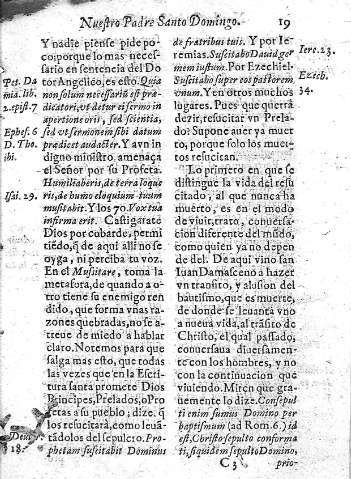 Nuestro Padre Santo Domingo. 19
Y nadie piense pide po-
co, porque lo mas neces-
sario en sentencia del Do
tor Angelico, es esto. Quia
non solum necessariũ est præ-
dicatori, vt detur ei sermo in
apertione oris, sed scientia,
sed vt sermonem sibi datum
predicet audacter. Y a vn in
digno ministro amenaça
el Señor por su Profeta.
Humiliaberis, de terra loque
ris, de humo eloquium tuum
musitabit. Y los 70. Vox tua
infirma erit. Castigarate
Dios por cobarde, permi
tiendo, q̃ de aqui alli no se
oyga, ni perciba tu voz.
En el Musitare, toma la
metafora, de quando a o-
tro tiene su enemigo ren
dido, que forma vnas ra-
zones quebradas, no se a-
treue de miedo a hablar
claro. Notemos para que
salga mas esto, que todas
las vezes que en la Escri-
tura santa promete Dios
Principes, Prelados, o Pro
fetas a su pueblo; dize, q̃
los resucitarà, como leuã-
tádolos del sepulcro. Pro-
phetam suscitabit Dominus
Pet. Da
mia. lib.
2. epist. 7
Ephes. 6
D. Tho.
ibi.
Isai. 29.
Deut.
18.
de fratribus tuis. Y por Ie-
remias. Suscitabo Dauid ger
men iustum. Por Ezechiel.
Suscitabo super eos pastorem
vnum. Y en otros muchos
lugares. Pues que querrà
dezir, resucitar vn Prela-
do? Supone auer ya muer
to, porque solo los muer-
tos resucitan.
Lo primero en que se
distingue la vida del resu
citado, al que nunca ha
muerto, es en el modo
de viuir, trato, conuersa-
cion diferente del mũdo,
como quien ya no depen
de del. De aqui vino san
Iuan Damasceno a hazer
vn transito, y alusion del
bautismo, que es muerte,
de donde se leuanta vno
a nueva vida, al trãsito de
Christo, el qual passado,
conuersaua diuersamen-
te con los hombres, y no
con la continuacion que
viuiendo. Miren que gra-
uemente lo dize. Consepul
ti enim sumus Domino per
baptismum (ad Rom. 6.) id
est. Christo sepulto conforma
ti, siquidem sepulto Domino,
Iere. 23.
Ezech.
34.
C 3 prio-